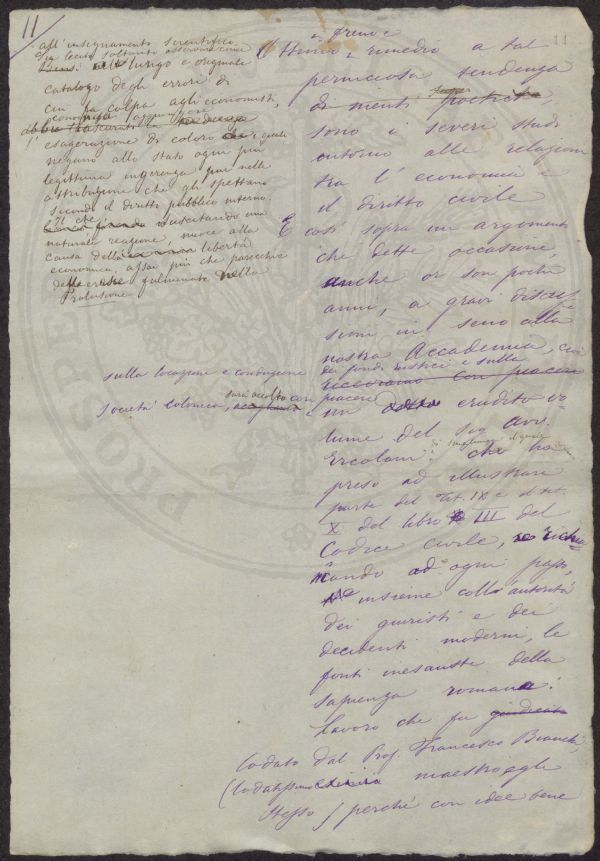 11
all' insegnamento scientifico
Sia lecito soltanto osservare come
lungo e originale
catalogo degli errori di
cui fa colpa agli economisti,
economisti
esagerazione di coloro i quali
negano allo Stato ogni più
legittima ingerenza pur nelle
attribuzioni che gli spettano
secondo il diritto pubblico interno.
Il che, suscitando una
naturale reazione, nuoce alla
causa della libertà
economica, assai più che parecchie
delle eresie fulminate nella
Prolusione
11
freno e
Ottimo rimedio a tal
perniciosa tendenza
di menti poetiche,
sono i severi studi
intorno alle relazioni
tra l' economia e
il diritto civile
E così sopra un argomento
che dette occasione,
anche or son pochi
anni, a gravi discus
sioni in seno alla
nostra Accademia, cioè
dei fondi rustici e sulla
riceviamo con piacere
sulla locazione e conduzione
società colonica, sarà accolto con piacere
un erudito vo
lume del Sig. Avv.
Ercolani: che ha
preso ad illustrare
parte del Tit. IX e il tit.
X del libro III del
Codice civile, richia
mando ad ogni passo,
insieme coll' autorità
dei giuristi e dei
decidenti moderni, le
fonti inesauste della
sapienza romana:
Lavoro che fu giudicato
lodato dal Prof. Francesco Bianchi,
(lodatissimo maestro egli
stesso) perchè con idee bene